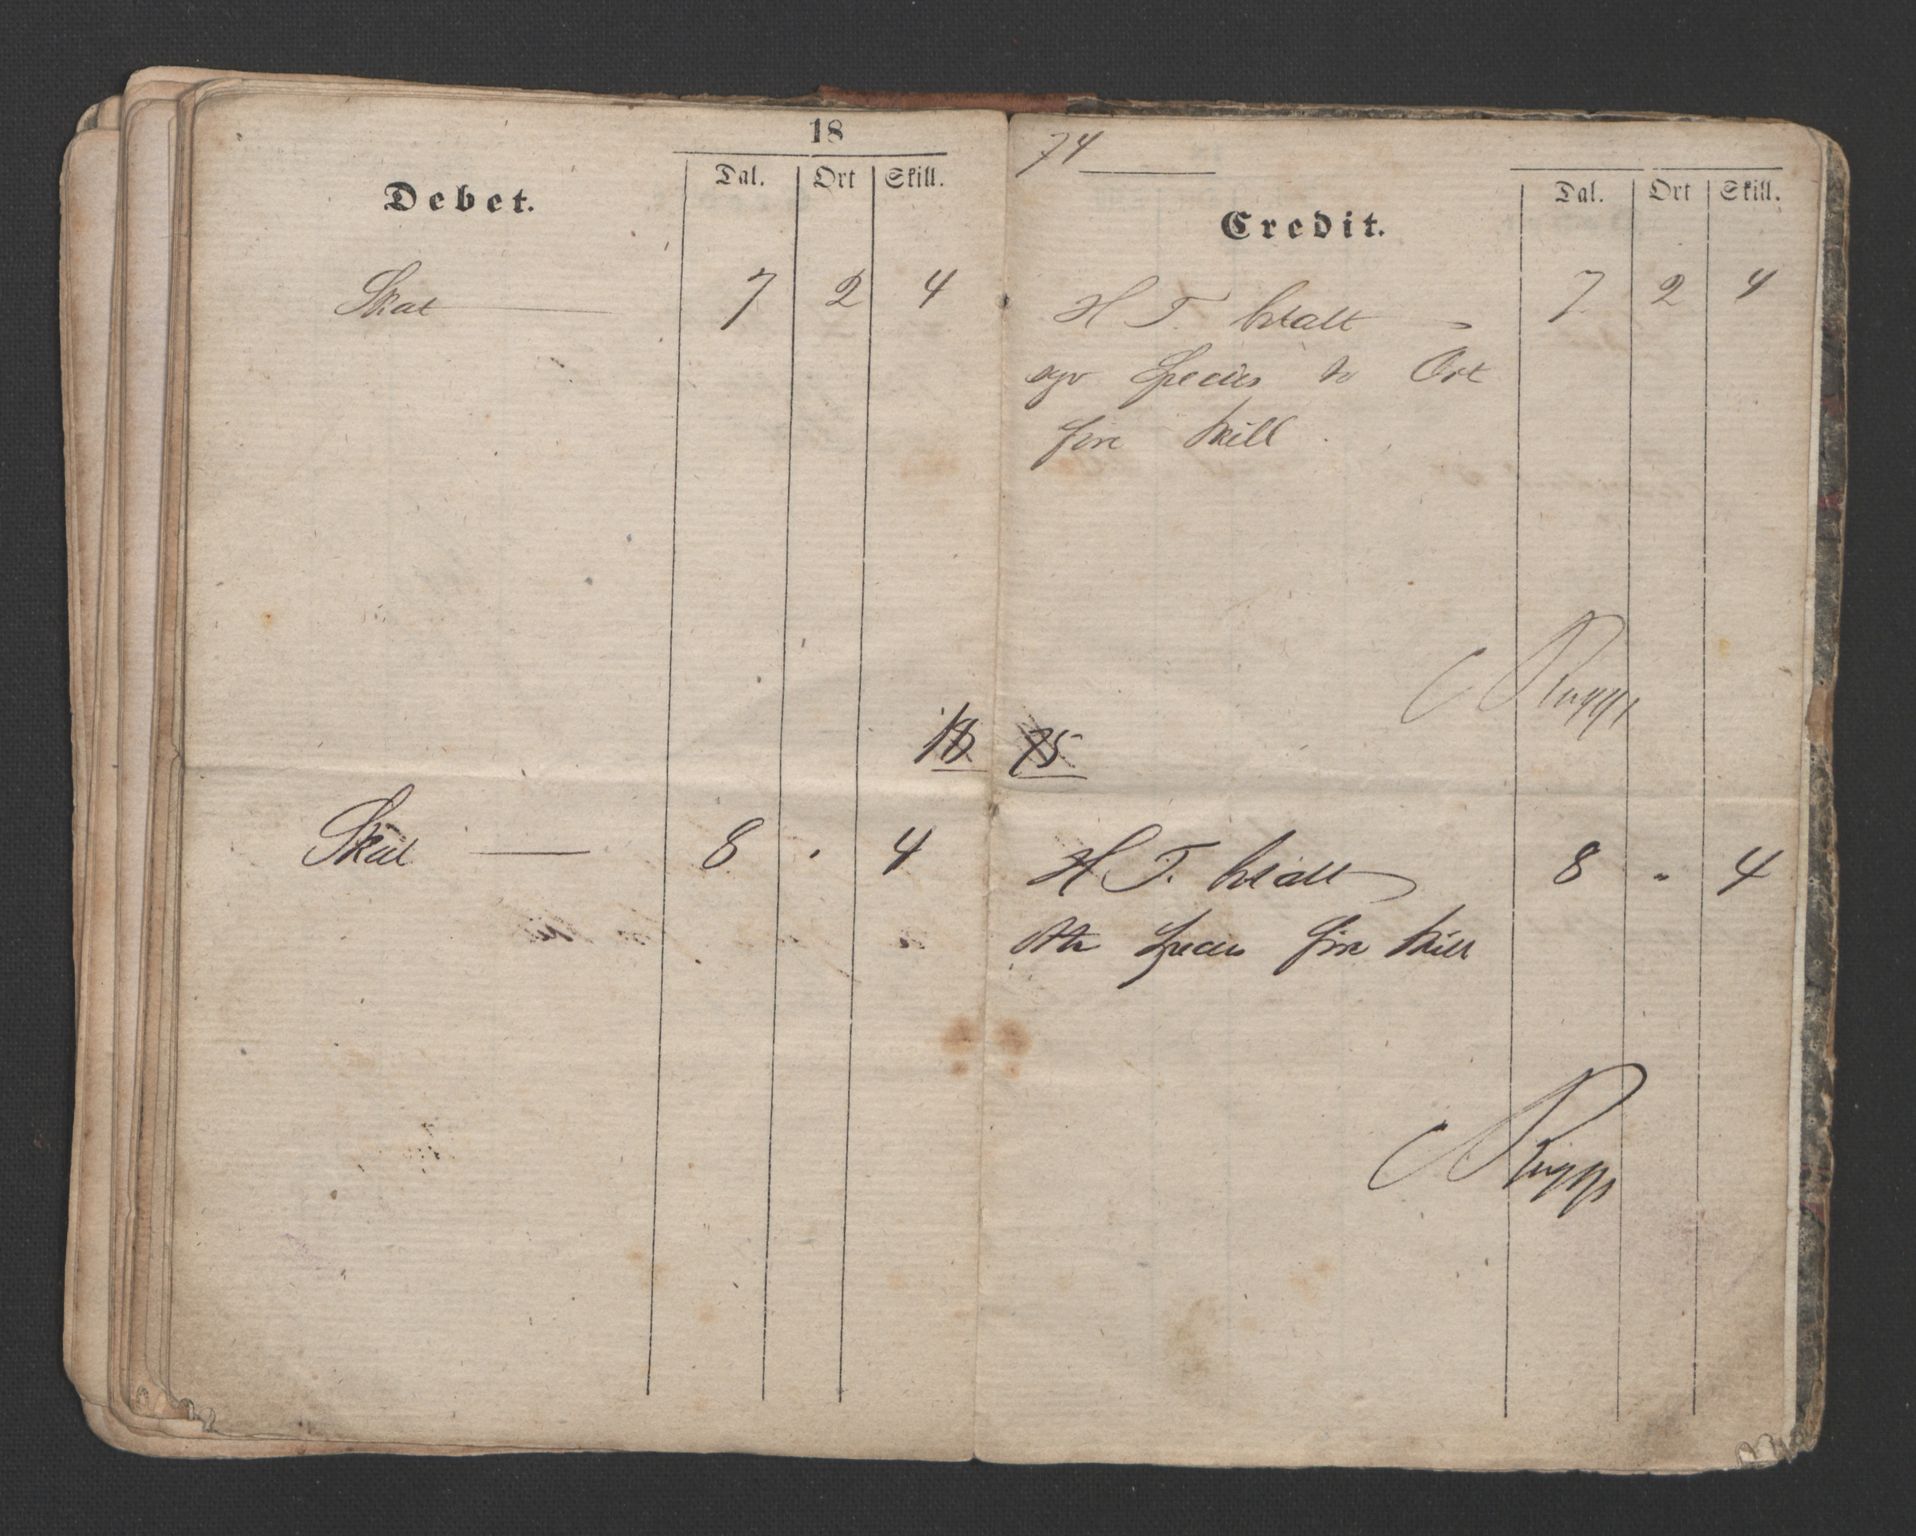 18
Debet.
Dal. Ort Skill.
Skat 7 2 4
18
Skat 8 " 4
74
Credit.
Dal. Ort Skill.
H T. betalt 7 2 4
syv Species to Ort
fire Skill
75
H. T. betalt 8 " 4
otte Species fire Skill